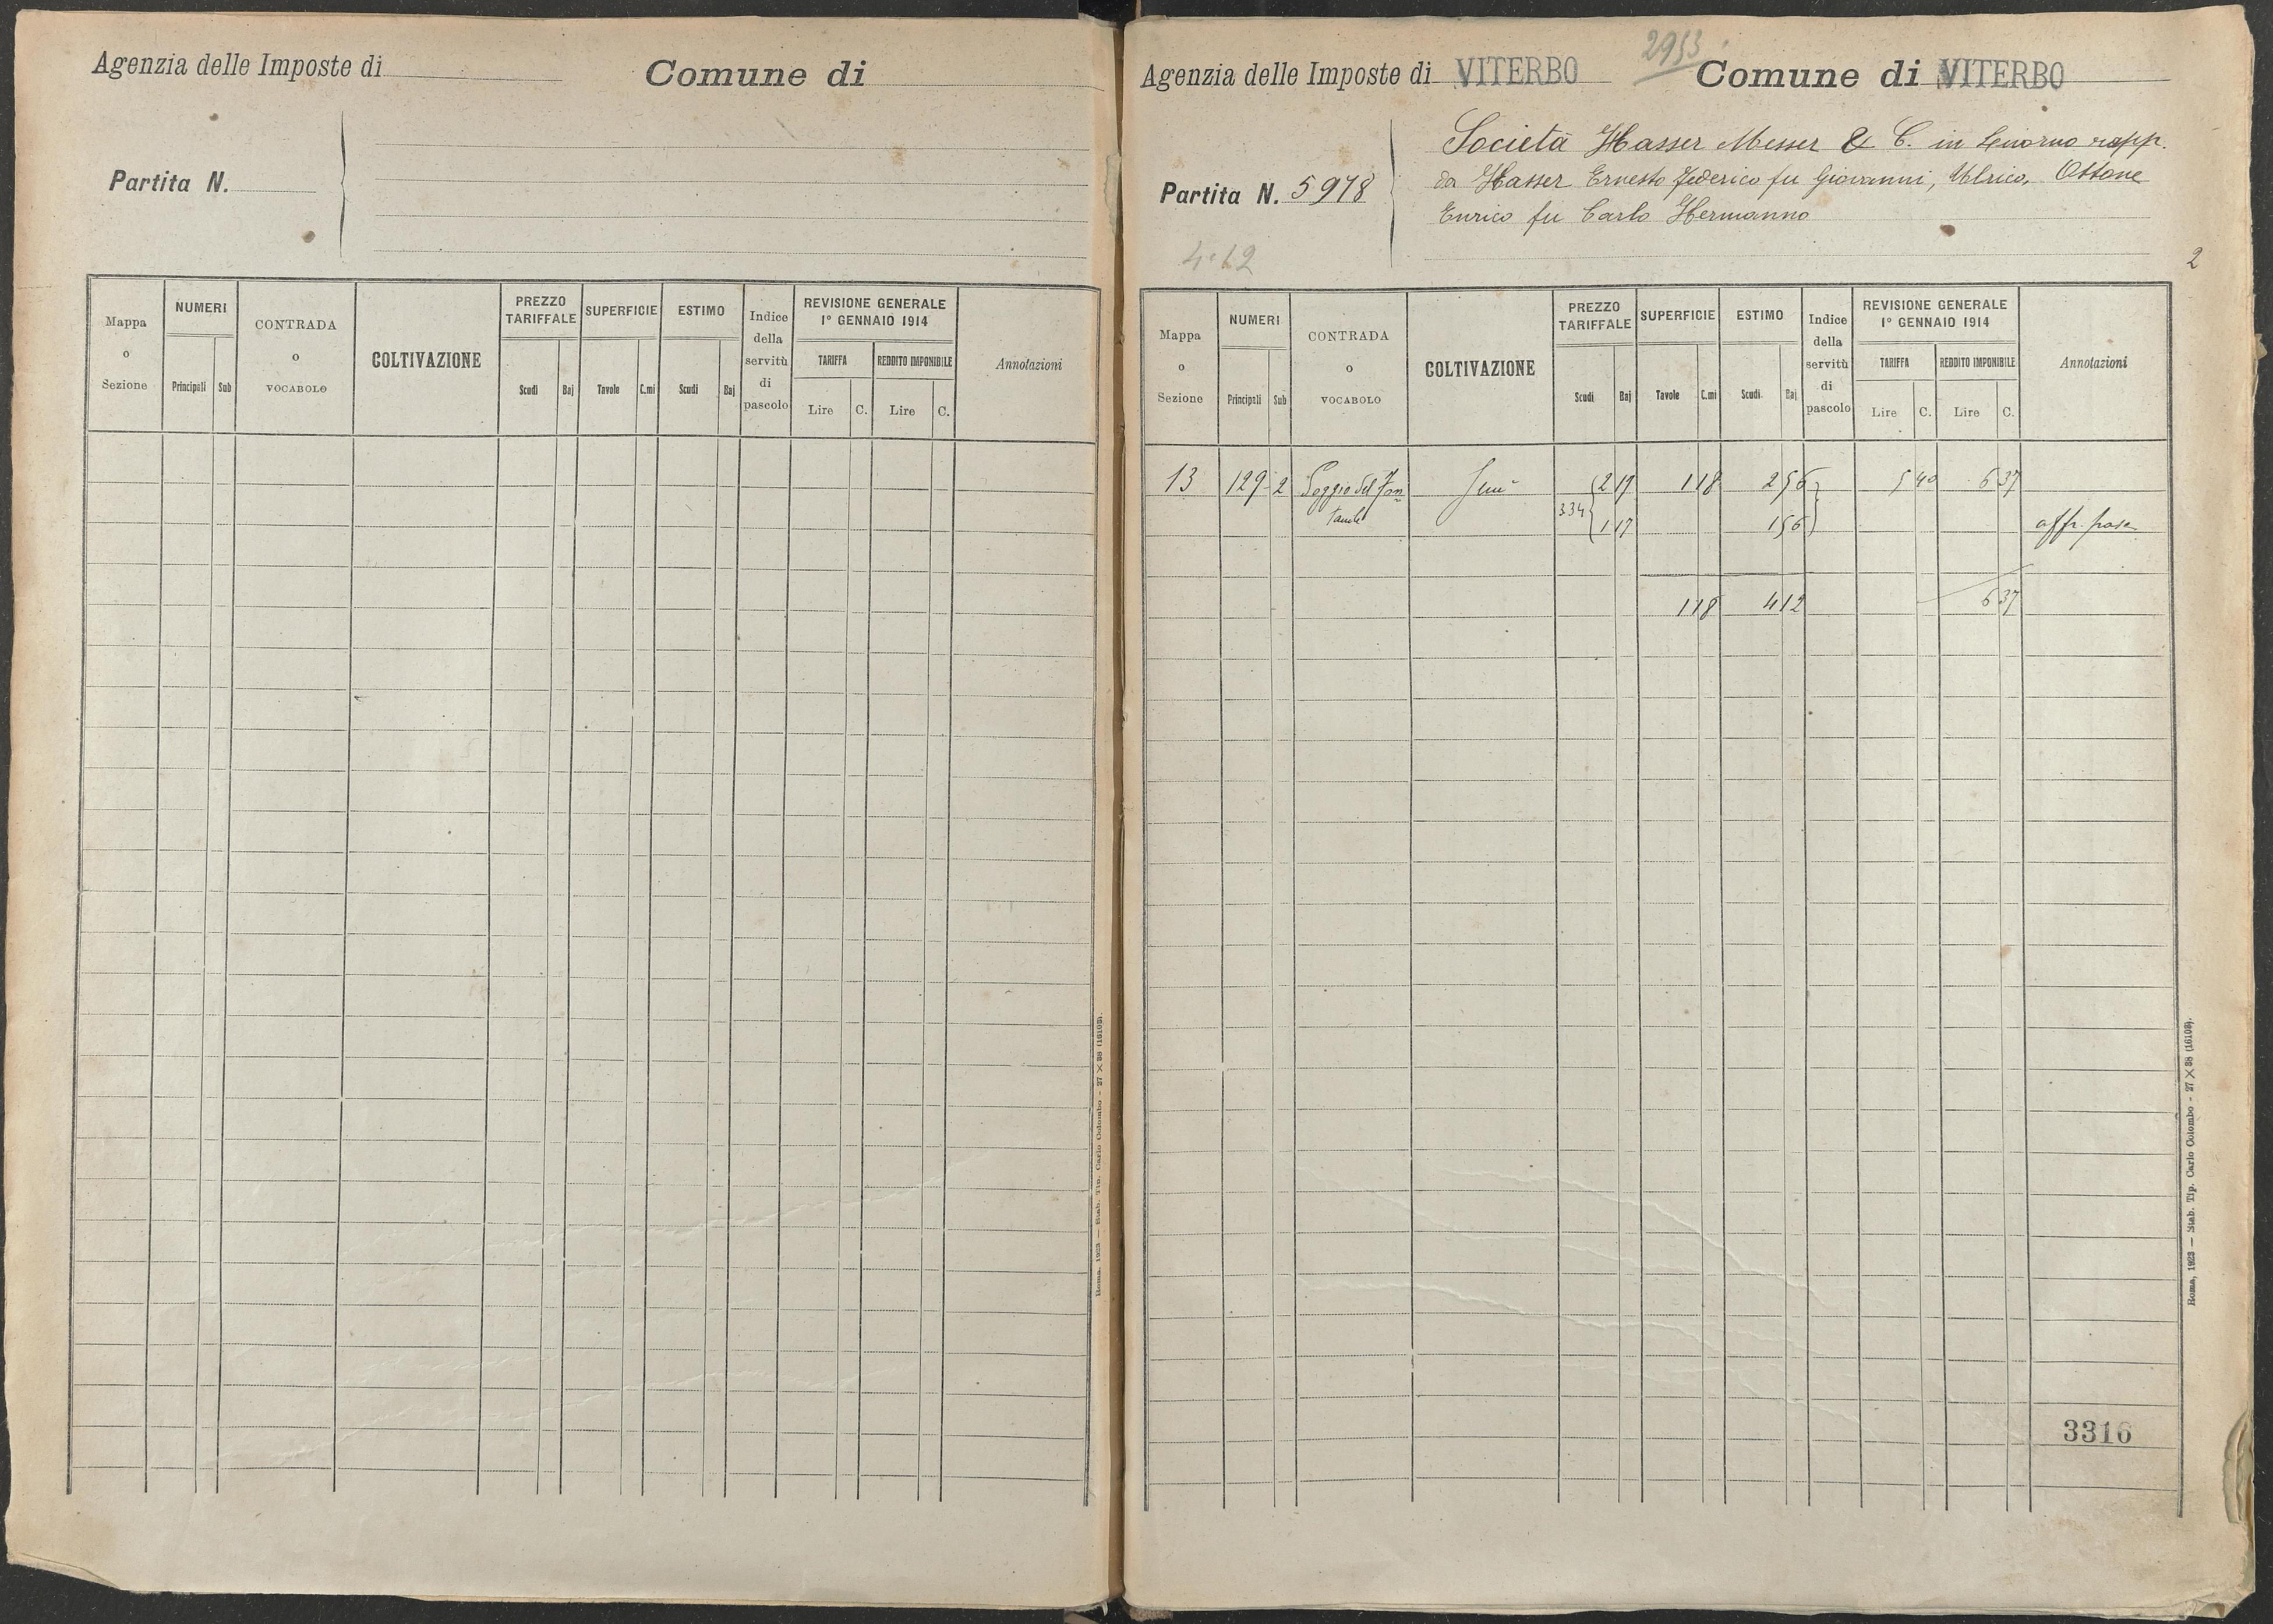 Agenzia delle Imposte di
Comune di
Partita N.
Mappa o Sezione
NUMERI
Principali Sub
CONTRADA o VOCABOLO
COLTIVAZIONE
PREZZO TARIFFALE
Scudi Baj
SUPERFICIE
Tavole C.mi
ESTIMO
Scudi Baj
Indice della servitù di pascolo
REVISIONE GENERALE
1° GENNAIO 1914
TARIFFA
Lire C.
REDDITO IMPONIBILE
Lire C.
Annotazioni
Roma, 1923 — Stab. Tip. Carlo Colombo - 27 X 38 (16108).
2953
Agenzia delle Imposte di VITERBO Comune di VITERBO
Partita N. 5978
Società Hasser Messer & C. in Livorno rapp.
da Hasser Ernesto Federico fu Giovanni, Ulrico, Ottone
Enrico fu Carlo Hermanno
4.12
2
Mappa o Sezione
NUMERI
Principali Sub
CONTRADA o VOCABOLO
COLTIVAZIONE
PREZZO TARIFFALE
Scudi Baj
SUPERFICIE
Tavole C.mi
ESTIMO
Scudi Baj
Indice della servitù di pascolo
REVISIONE GENERALE
1° GENNAIO 1914
TARIFFA
Lire C.
REDDITO IMPONIBILE
Lire C.
Annotazioni
13 129 2 Poggio del Fon Semi 2 19 1 18 2 56 5 40 6 37
tanile 334 1 17 1 56 affr. pasc.
1 18 4 12 6 37
3316
Roma, 1923 — Stab. Tip. Carlo Colombo - 27 X 38 (16108).